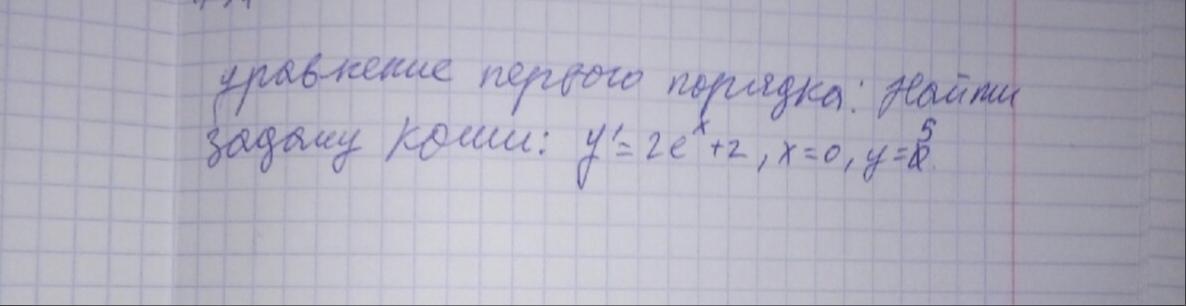 уравнение первого порядка: Найти
задачу Коши: y' = 2e^x + 2, x = 0, y = 5